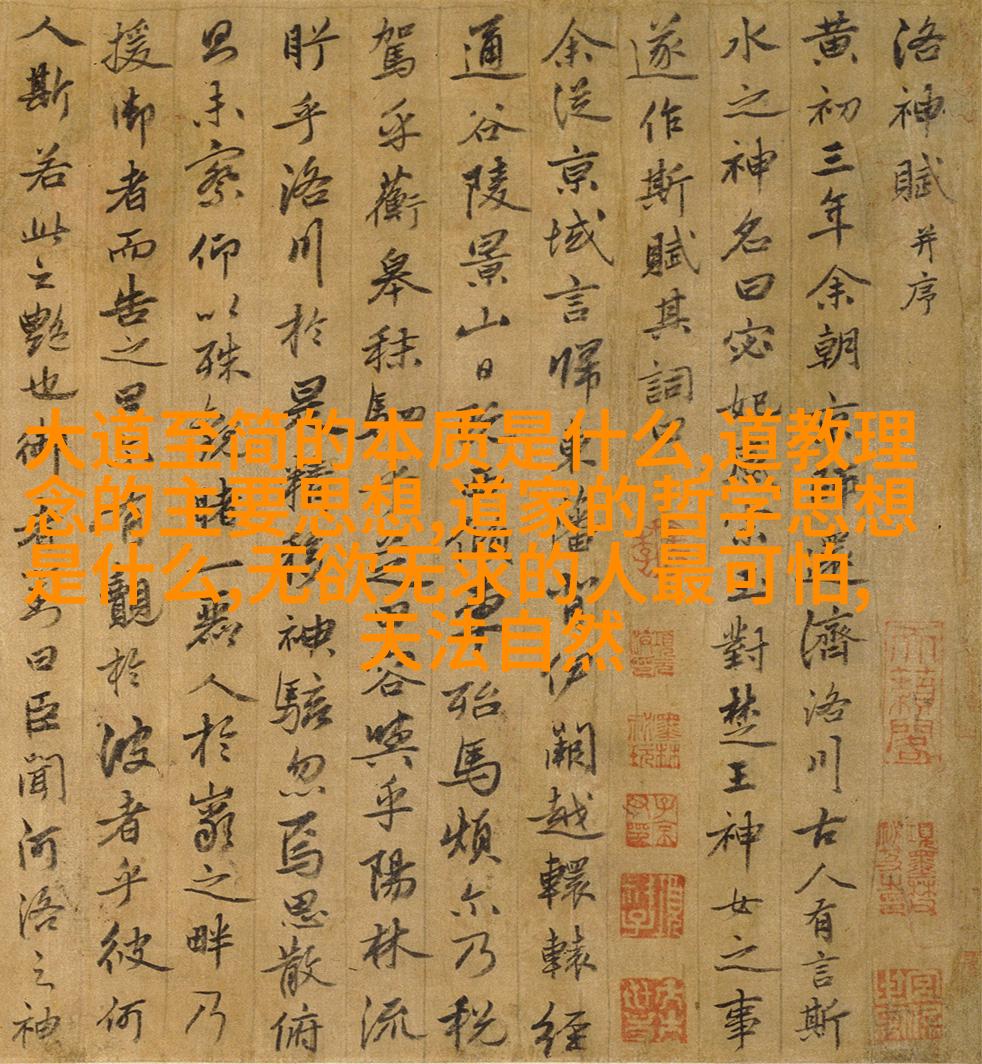 洛神賦并序
黄初三年余朝京師還濟洛川古人有言斯
水之神名曰宓妃感宋玉對楚王神女之事
遂作斯賦其詞曰
余從京域言歸東藩背伊闕越轘轅經
通谷陵景山日既西傾車殆馬煩尒乃税
駕乎蘅皋秣駟乎芝田容與乎陽林流
眄乎洛川於是精移神駭忽焉思散俯
以未察仰以殊觀睹一麗人於巖之畔乃
援御者而告之曰有覿於彼者乎彼何
人斯若此之艷也御者對曰臣聞河洛之神
大道至简的本质是什么,道教理
念的主要思想,道家的哲学思想
是什么,无欲无求的人最可怕,
天法自然